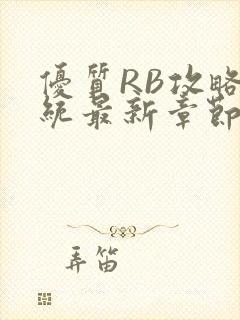 優質RB攻略
統最新章節
弄笛